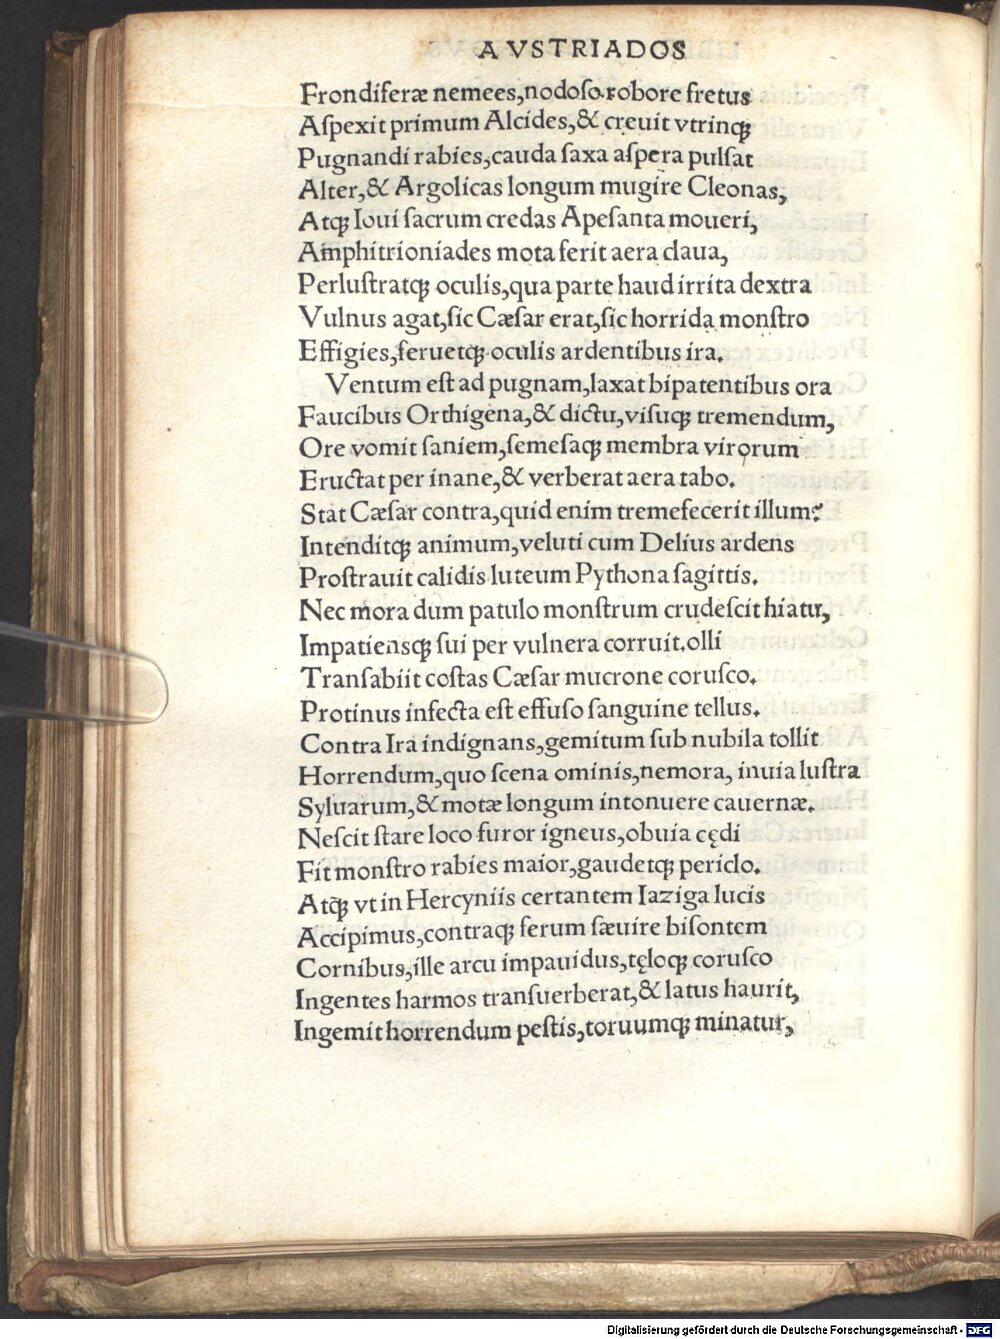 AVSTRIADOS
Frondiferæ nemees, nodoſo robore fretus
Aſpexit primum Alcides, & creuit vtrinq;
Pugnandi rabies, cauda ſaxa aſpera pulſat
Alter, & Argolicas longum mugire Cleonas,
Atq; Ioui ſacrum credas Apeſanta moueri,
Amphitrioniades mota ferit aera claua,
Perluſtratq; oculis, qua parte haud irrita dextra
Vulnus agat, ſic Cæſar erat, ſic horrida monſtro
Effigies, feruetq; oculis ardentibus ira.
Ventum eſt ad pugnam, laxat bipatentibus ora
Faucibus Orthigena, & dictu, viſuq; tremendum,
Ore vomit ſaniem, ſemeſaq; membra virorum
Eructat per inane, & verberat aera tabo.
Stat Cæſar contra, quid enim tremefecerit illum?
Intenditq; animum, veluti cum Delius ardens
Proſtrauit calidis luteum Pythona ſagittis.
Nec mora dum patulo monſtrum crudeſcit hiatu,
Impatiensq; ſui per vulnera corruit. olli
Tranſabiit coſtas Cæſar mucrone coruſco.
Protinus infecta eſt effuſo ſanguine tellus.
Contra Ira indignans, gemitum ſub nubila tollit
Horrendum, quo ſcena ominis, nemora, inuia luſtra
Syluarum, & motæ longum intonuere cauernæ.
Neſcit ſtare loco furor igneus, obuia cędi
Fit monſtro rabies maior, gaudetq; periclo.
Atq; vt in Hercyniis certantem Iaziga lucis
Accipimus, contraq; ferum ſæuire biſontem
Cornibus, ille arcu impauidus, tęloq; coruſco
Ingentes harmos tranſuerberat, & latus haurit,
Ingemit horrendum peſtis, toruumq; minatur,
Digitalisierung gefördert durch die Deutsche Forschungsgemeinschaft - DFG